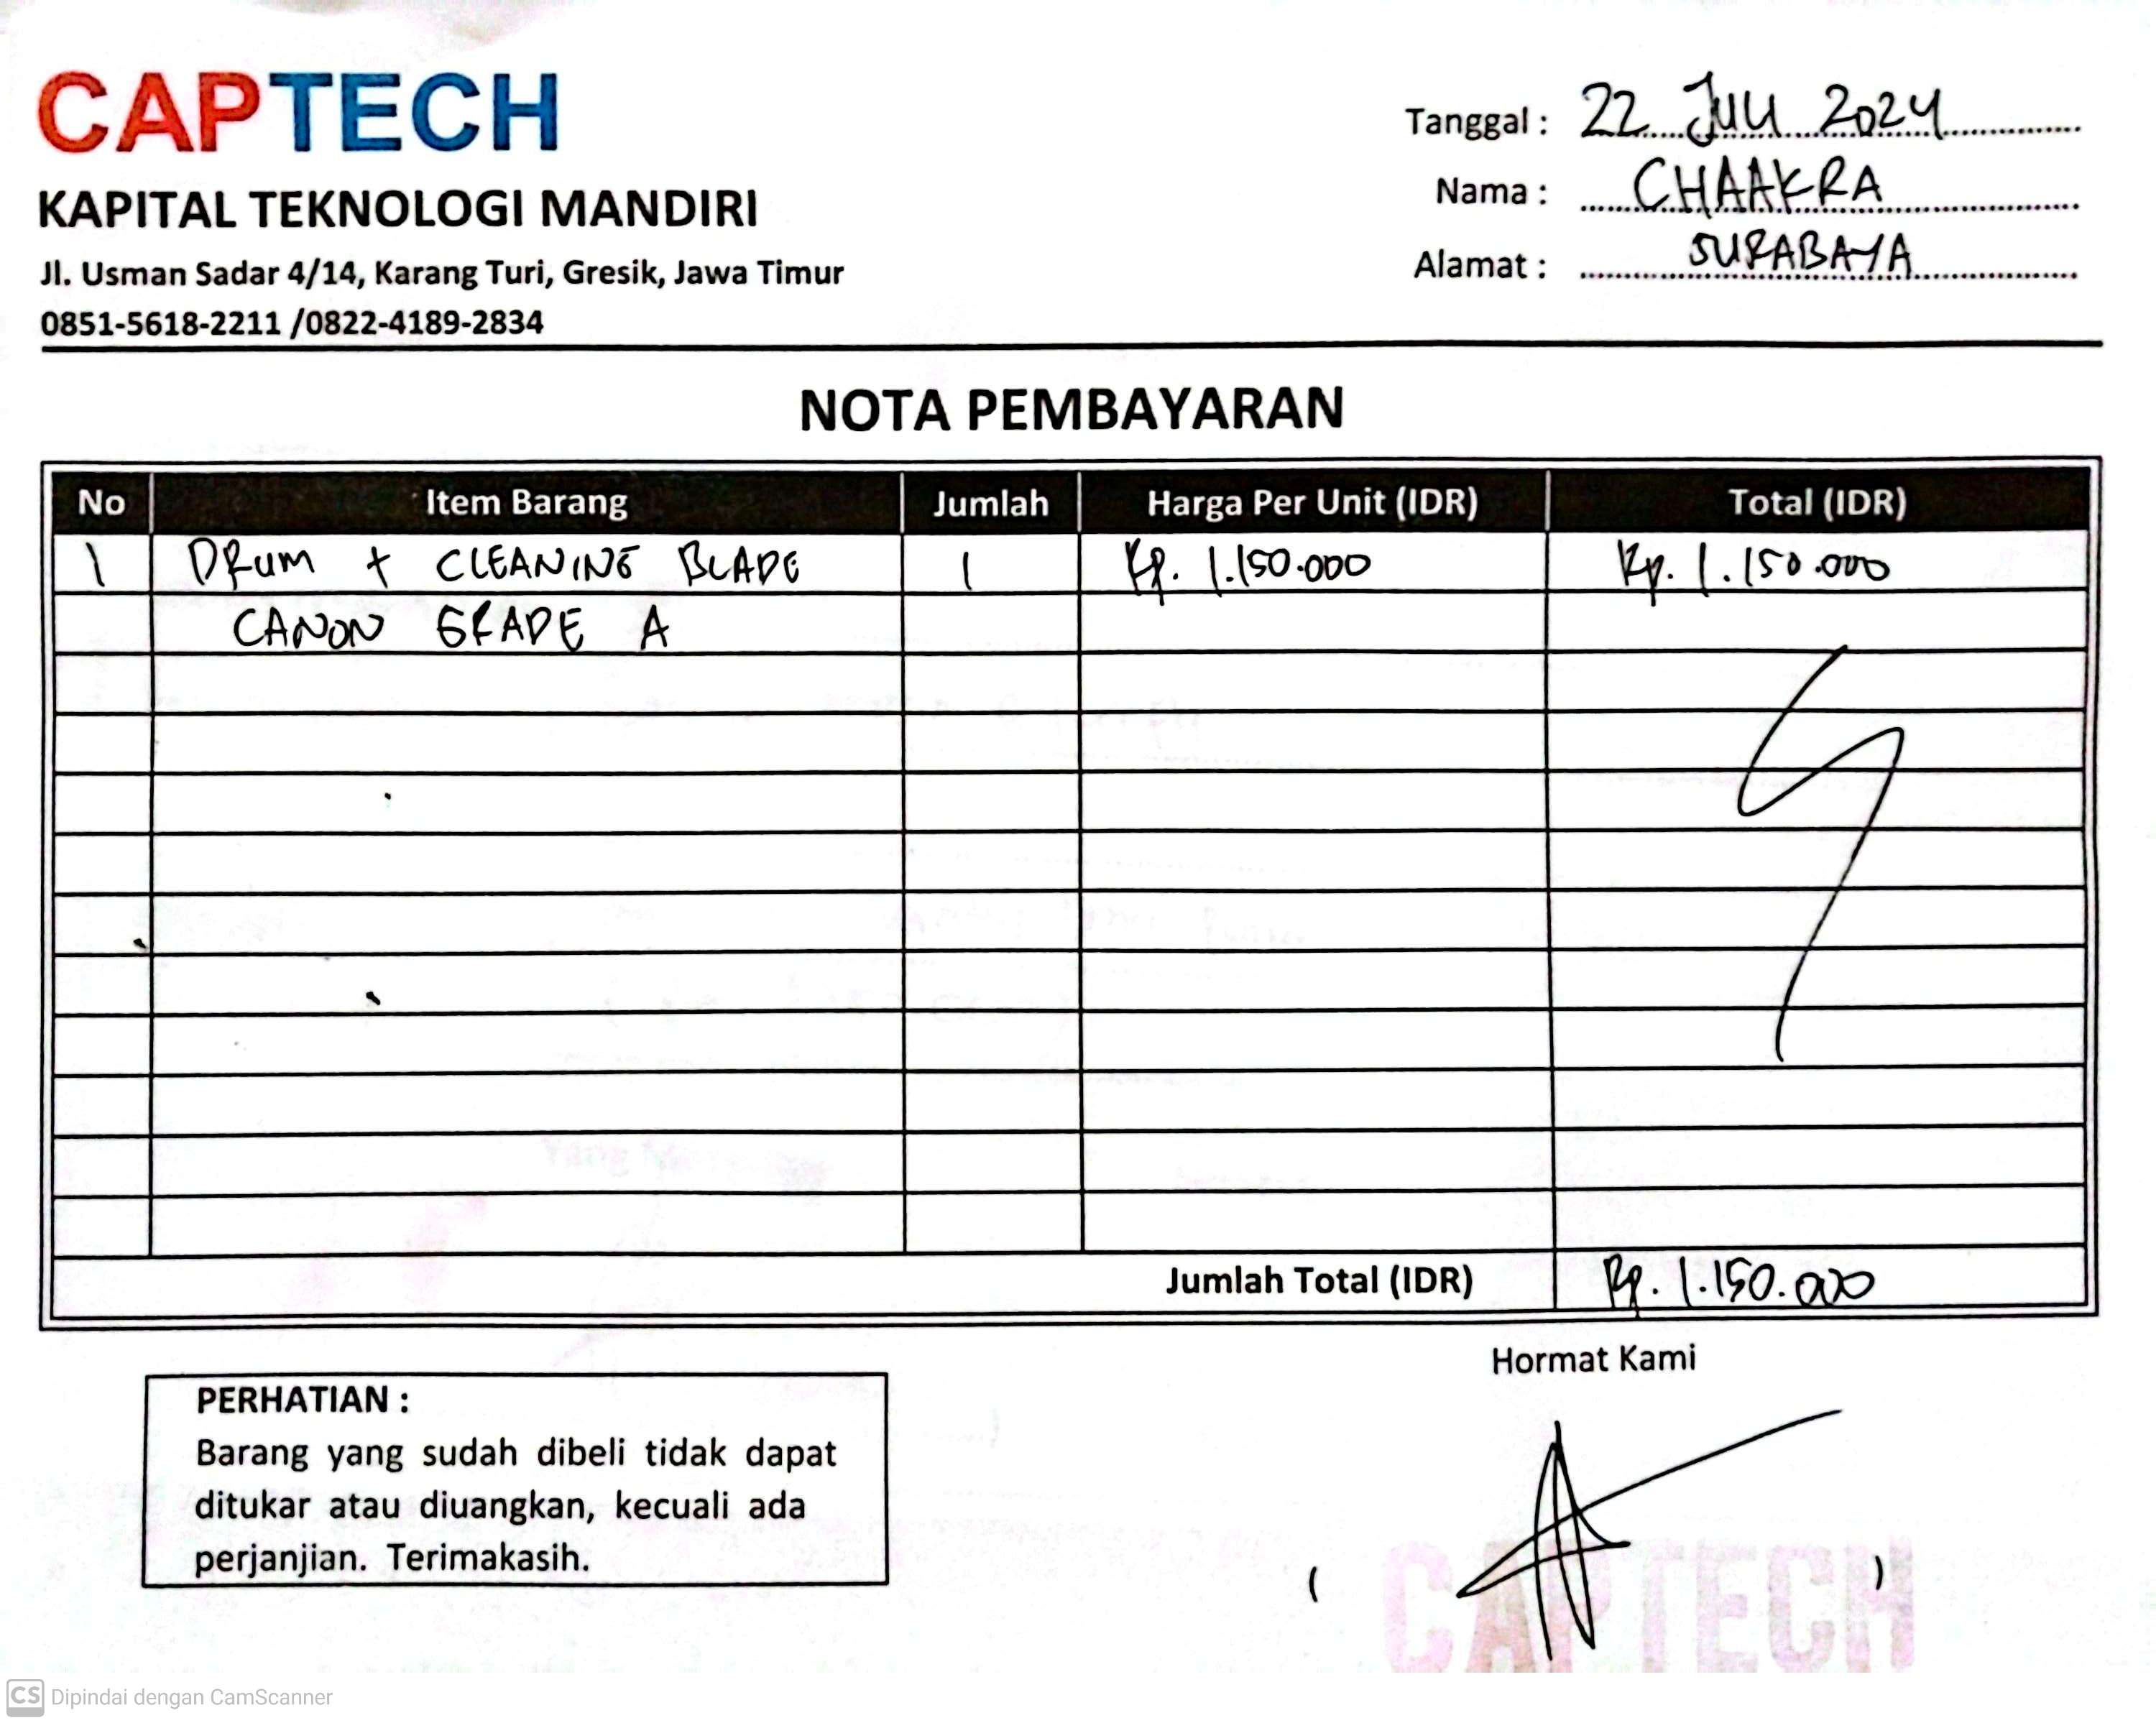 CAPTECH
KAPITAL TEKNOLOGI MANDIRI
Jl. Usman Sadar 4/14, Karang Turi, Gresik, Jawa Timur
0851-5618-2211 /0822-4189-2834
Tanggal : 22 JULI 2024
Nama : CHAAKRA
Alamat : SURABAYA
NOTA PEMBAYARAN
No Item Barang Jumlah Harga Per Unit (IDR) Total (IDR)
1 DRUM + CLEANING BLADE 1 Rp. 1.150.000 Rp. 1.150.000
CANON GRADE A
Jumlah Total (IDR) Rp. 1.150.000
Hormat Kami
PERHATIAN :
Barang yang sudah dibeli tidak dapat
ditukar atau diuangkan, kecuali ada
perjanjian. Terimakasih.
( )
CAPTECH
CS Dipindai dengan CamScanner